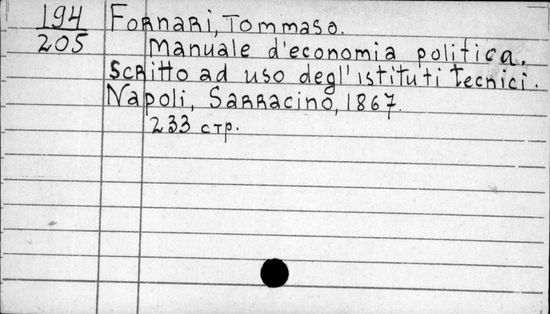 194
205
Fornari, Tommaso.
Manuale d'economia politica.
Scritto ad uso degl'istituti tecnici.
Napoli, Sarracino, 1867.
233 стр.